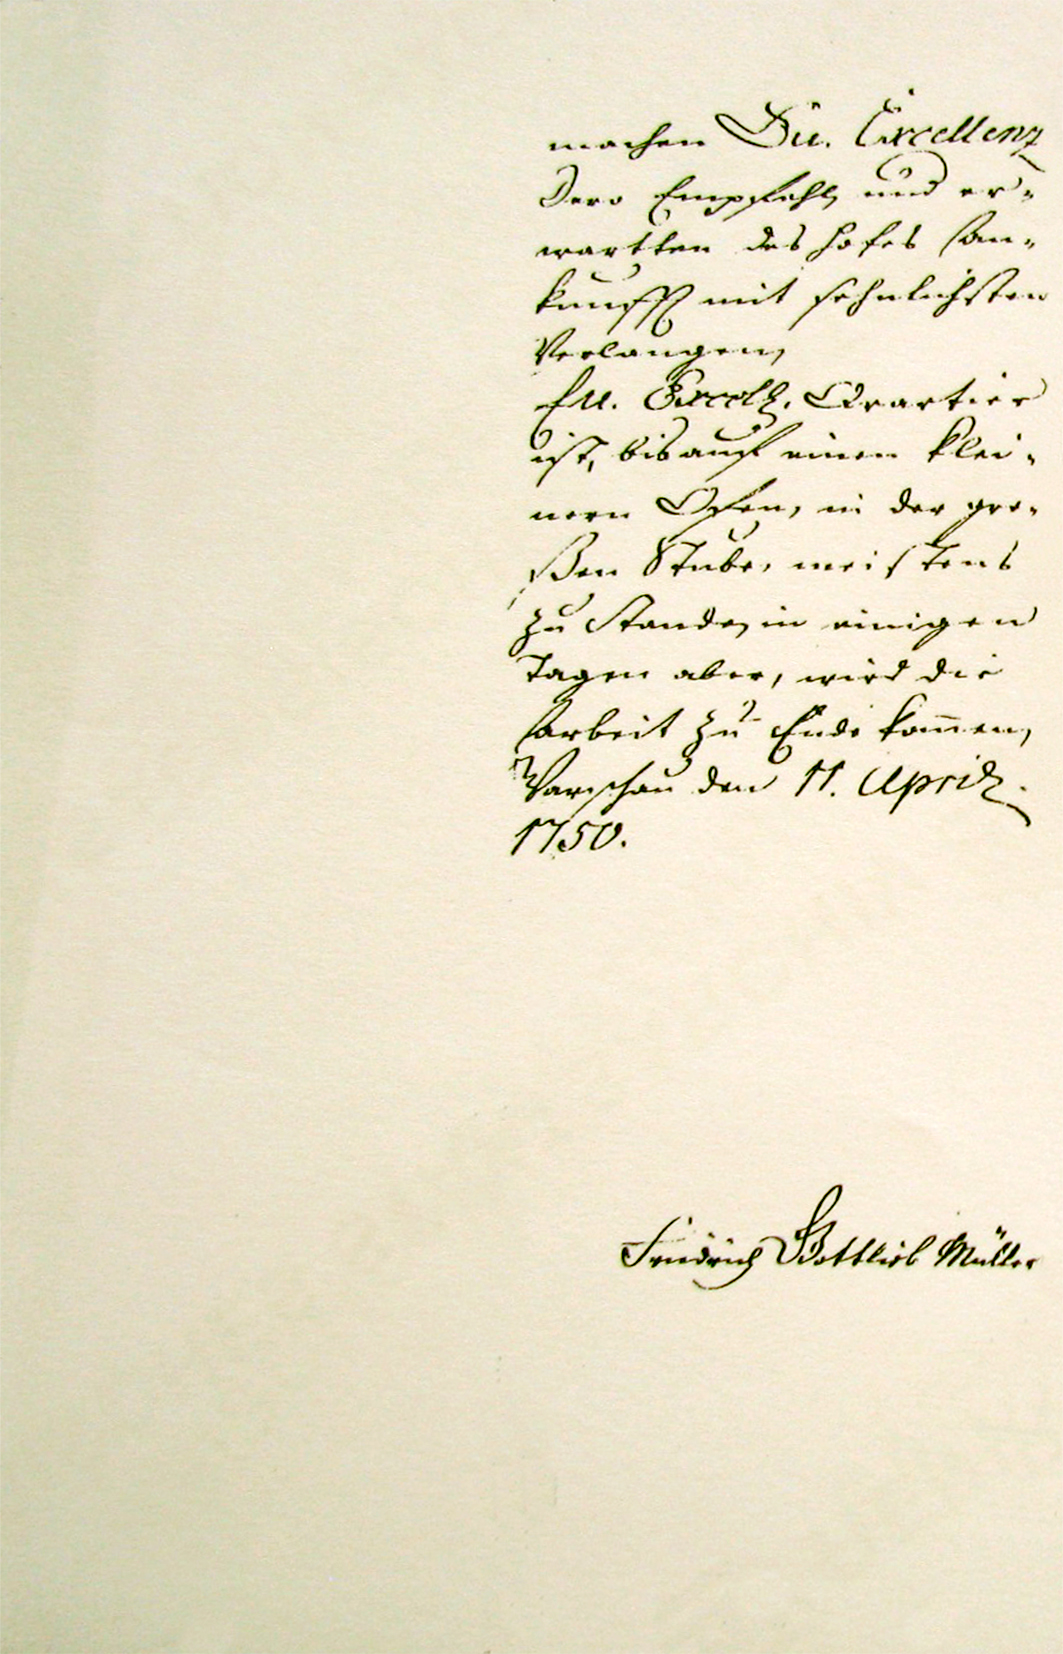 machen Eu. Excellenz
Dero Empfehl, und er-
wartten des Hofes An-
kunfft mit sehnlichsten
Verlangen,
Eu. Excell. Qvartier
ist, bis auf einen klei-
nern Ofen, in der gro-
ßen Stube, meistens
zu Stande, in einigen
Tagen aber, wird die
Arbeit zu Ende kom̅en,
Warschau den 11. April.
1750.
Friedrich Gottlieb Müller